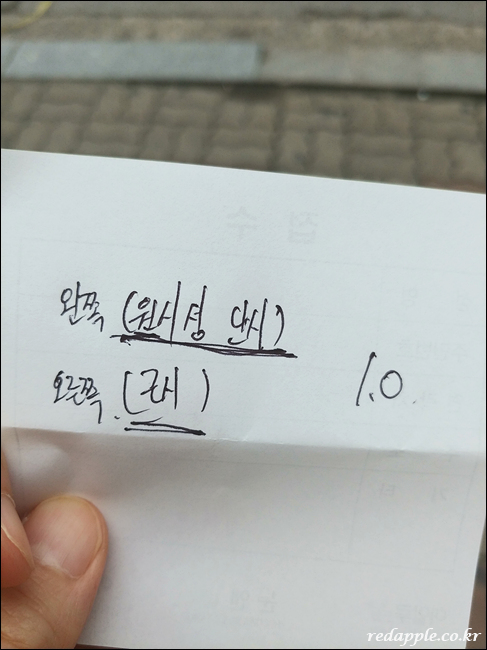 왼쪽 (원시성 난시)
오른쪽. (근시) 1.0.
redapple.co.kr